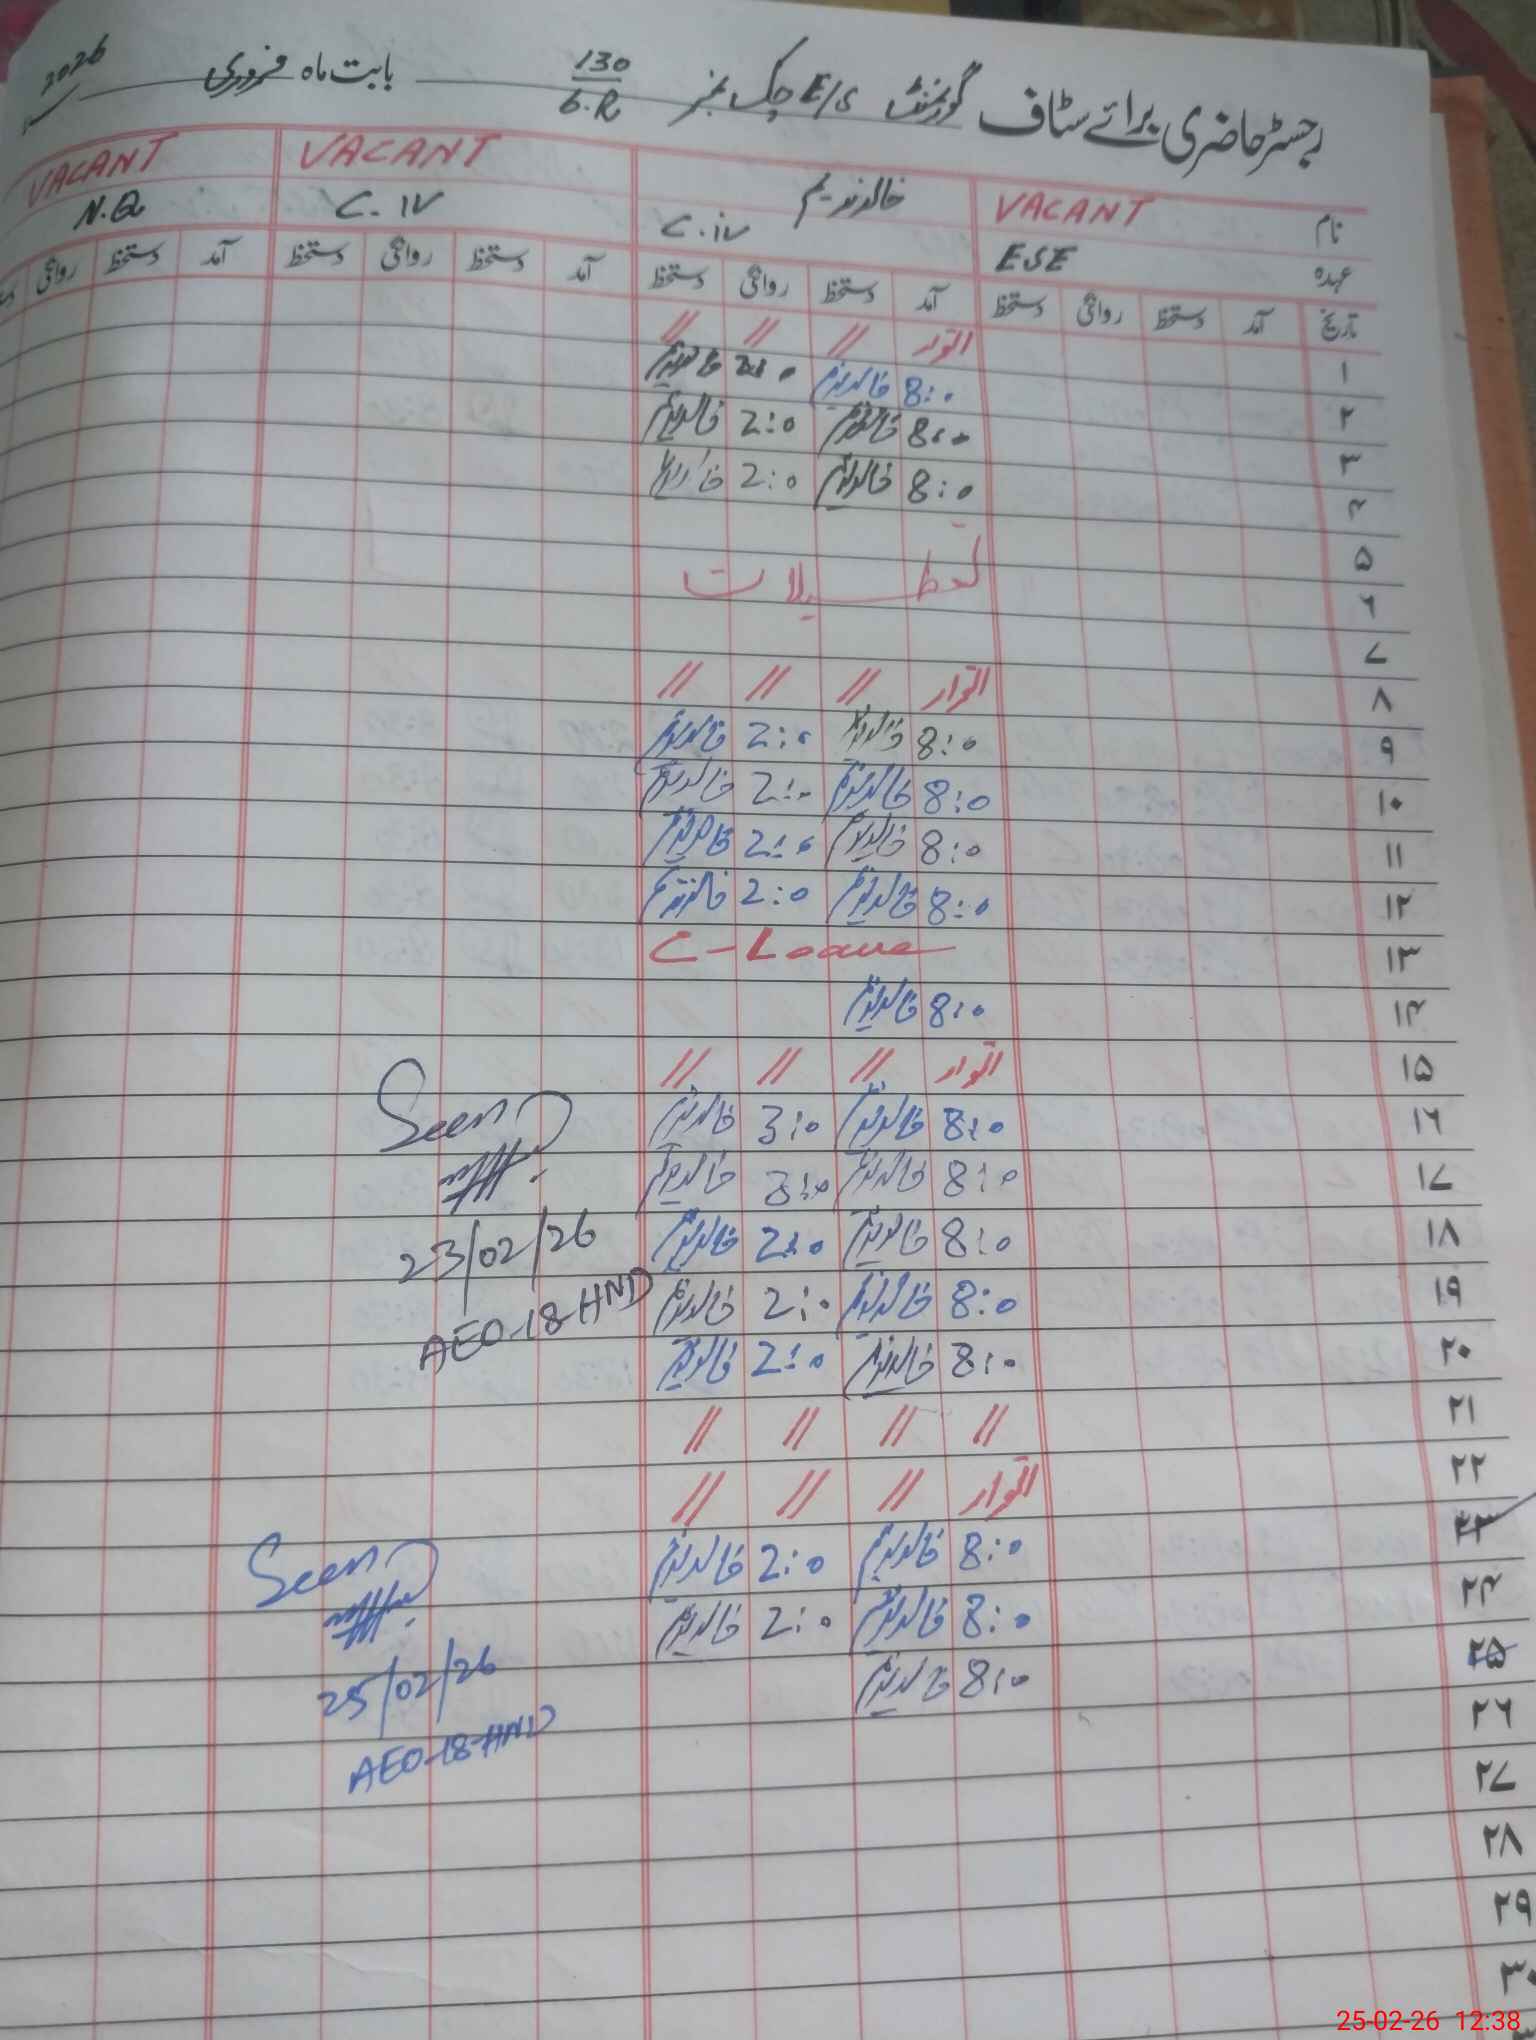 رجسٹر حاضری برائے سٹاف گورنمنٹ E/S چک نمبر 130/6.R بابت ماہ فروری 2026
نام VACANT خالد ندیم VACANT VACANT
عہدہ ESE C.iv C.IV N.Q
تاریخ آمد دستخط روانگی دستخط آمد دستخط روانگی دستخط آمد دستخط روانگی دستخط آمد دستخط روانگی
۱ اتوار // // //
۲ 8:0 خالد ندیم 2:0 خالد ندیم
۳ 8:0 خالد ندیم 2:0 خالد ندیم
۴ 8:0 خالد ندیم 2:0
۵
۶ تعطیلات
۷
۸ اتوار // // //
۹ 8:0 خالد ندیم 2:0 خالد ندیم
۱۰ 8:0 خالد ندیم 2:0 خالد ندیم
۱۱ 8:0 خالد ندیم 2:0 خالد ندیم
۱۲ 8:0 خالد ندیم 2:0 خالد ندیم
۱۳ C-Leave
۱۴ 8:0 خالد ندیم
۱۵ اتوار // // //
۱۶ 8:0 خالد ندیم 3:0 خالد ندیم
۱۷ 8:0 خالد ندیم 3:0 خالد ندیم
۱۸ 8:0 خالد ندیم 2:0 خالد ندیم
۱۹ 8:0 خالد ندیم 2:0 خالد ندیم
۲۰ 8:0 خالد ندیم 2:0 خالد ندیم
۲۱ // // // //
۲۲ اتوار // // //
۲۳ 8:0 خالد ندیم 2:0 خالد ندیم
۲۴ 8:0 خالد ندیم 2:0 خالد ندیم
۲۵ 8:0 خالد ندیم
۲۶
۲۷
۲۸
۲۹
۳۰
Seen
23/02/26
AEO-18-HND
Seen
25/02/26
AEO-18-HND
25-02-26 12:38